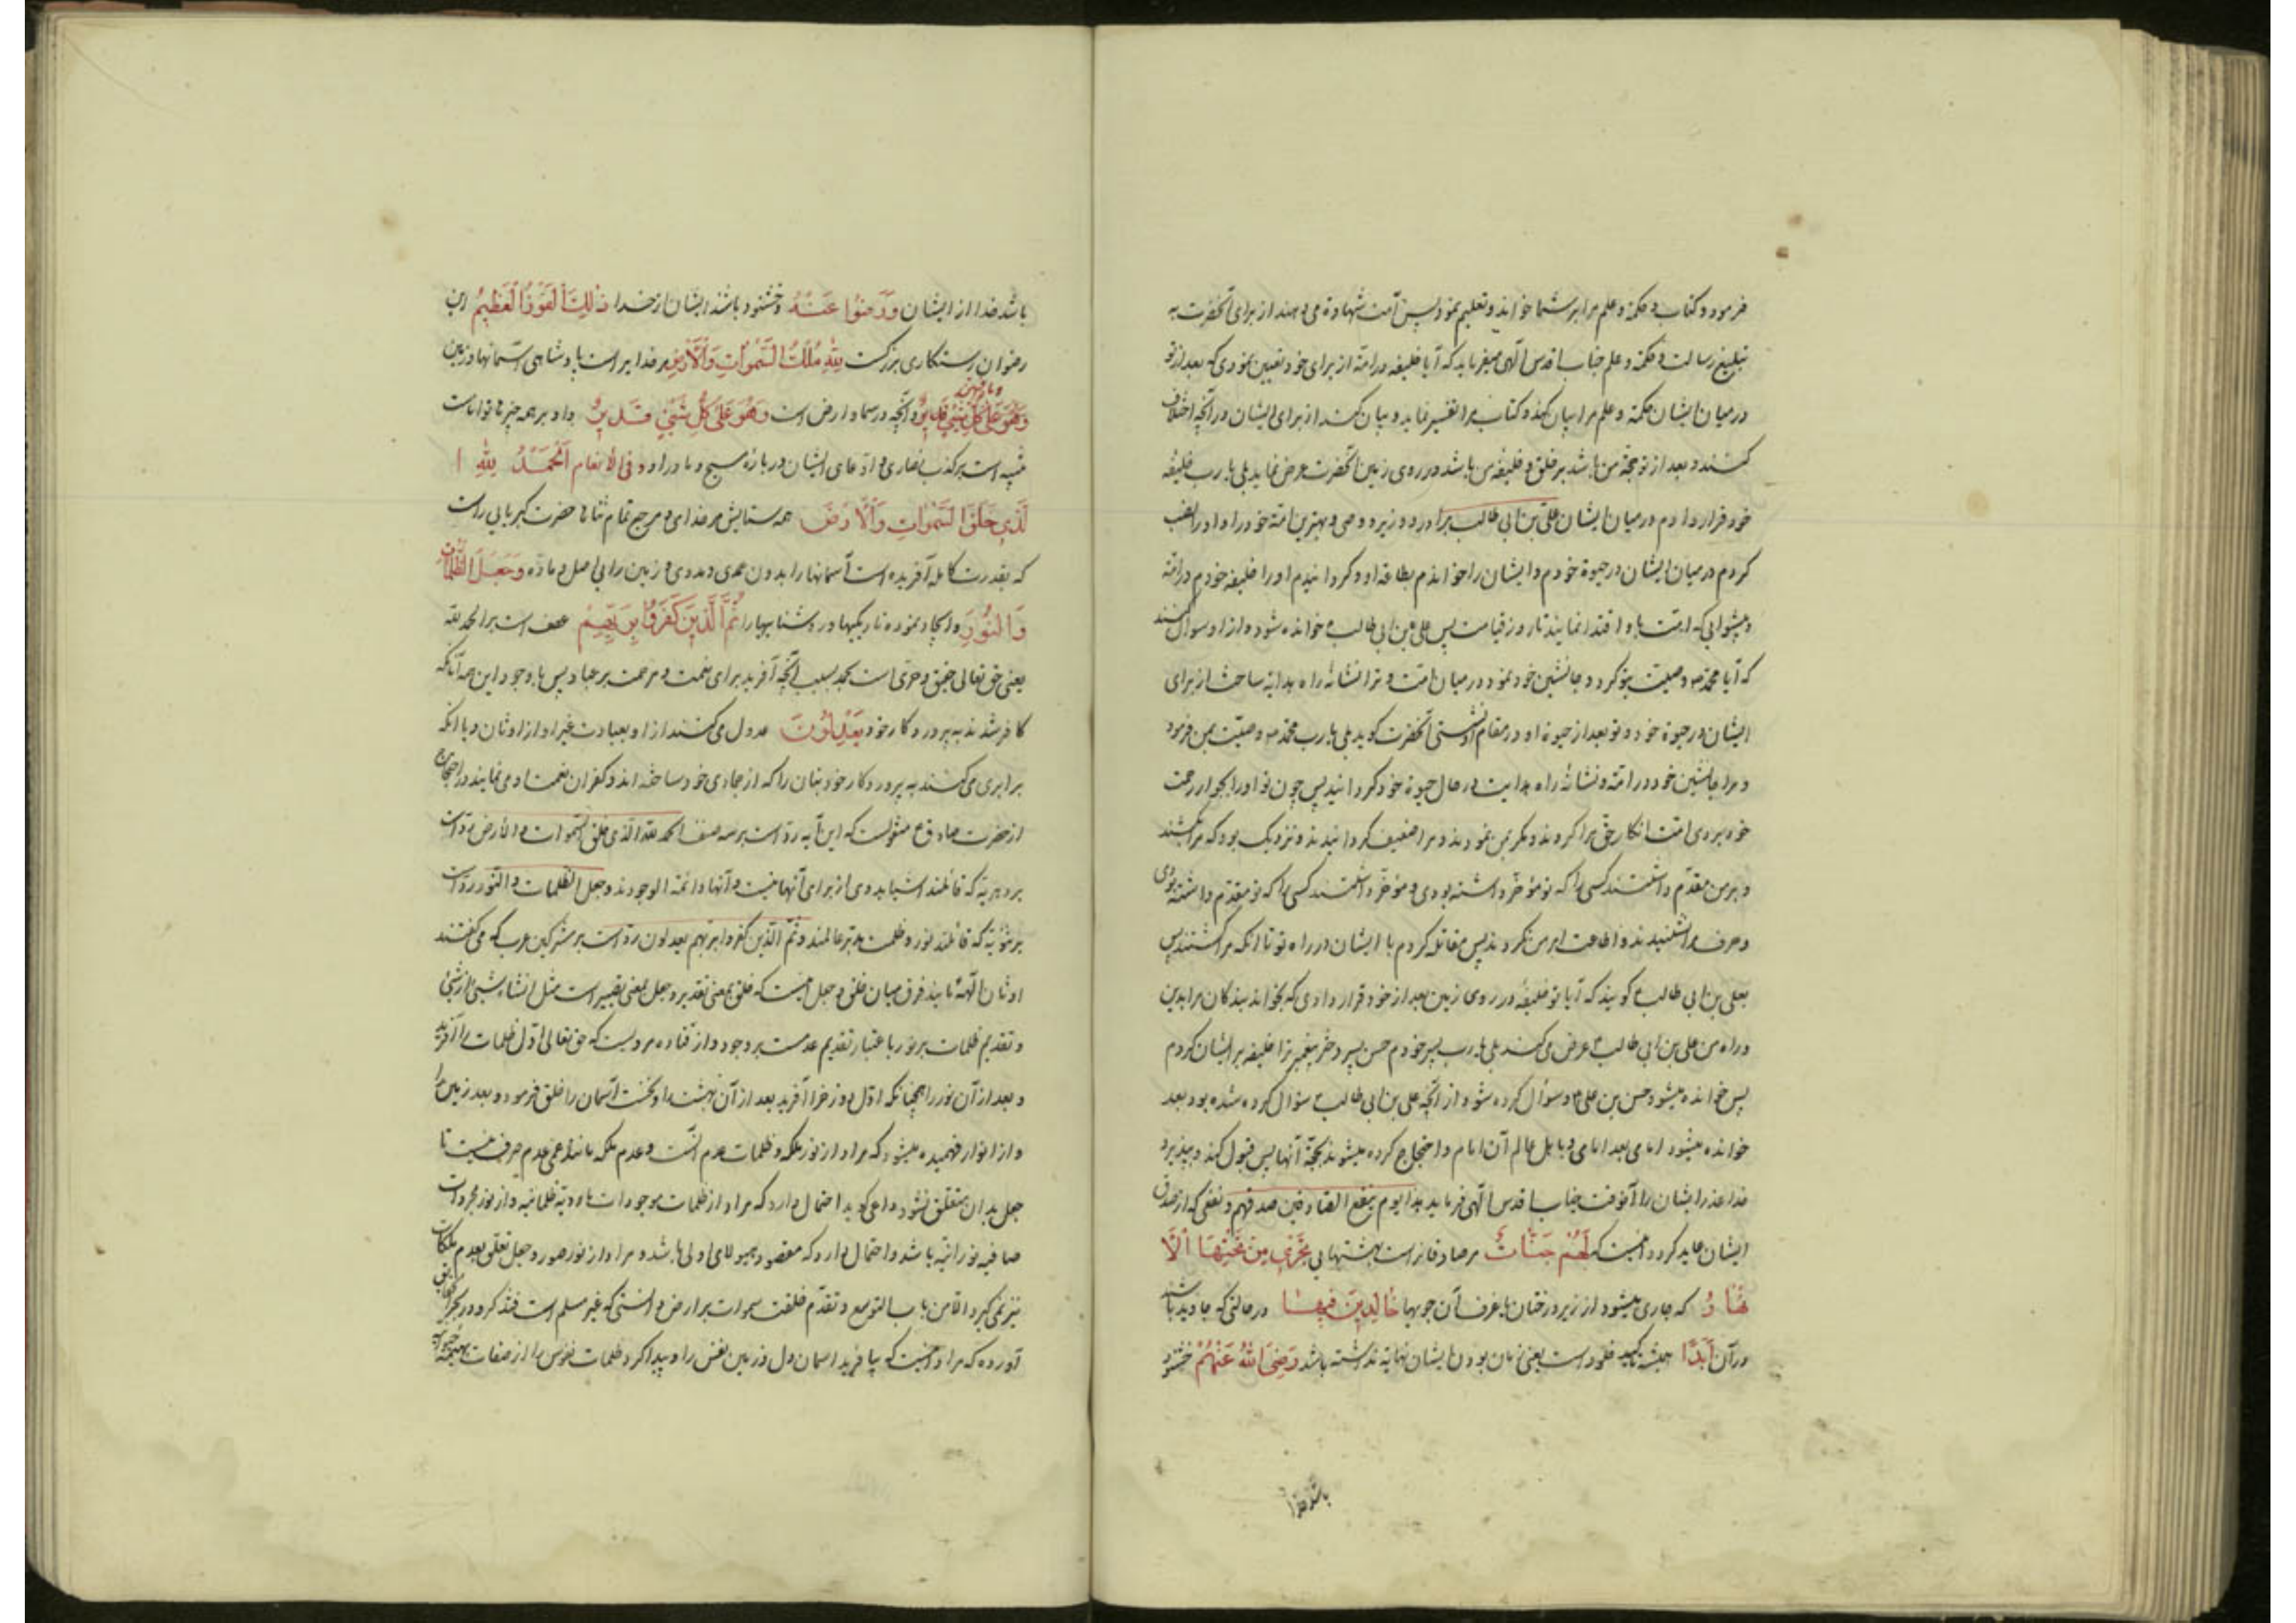 فرمود و کتاب و حکمة و علم مرا بر شما خوانده و تعلیم نمود پس امت شهادة می دهند از برای آنحضرت به
تبلیغ رسالت و حکمة و علم جناب اقدس الهی میفرماید که آیا خلیفه در امة از برای خود تعیین نمودی که بعد از تو
در میان ایشان حکمة و علم مرا بیان کند و کتاب مرا تفسیر نماید و بیان کند از برای ایشان در آنچه اختلاف
کنند و بعد از تو حجة من باشد بر خلق و خلیفه من باشد در روی زمین آنحضرت عرض نماید بلی یا رب خلیفه
خود قرار دادم در میان ایشان علی بن ابی طالب برادر و وزیر و وصی و بهترین امة خود را و او را نصب
کردم در میان ایشان در حیوة خودم و ایشان را خواندم بطاعة او و گردانیدم او را خلیفه خودم در امة
و پیشوایی که امت باو اقتدا نمایند تا روز قیامت پس علی بن ابی طالب خوانده شود و از او سوال کنند
که آیا محمد وصیت بتو کرد و جانشین خود نمود در میان امت و ترا نشانهٔ راه هدایة ساخت از برای
ایشان در حیوة خود و تو بعد از حیوة او در مقام او نشستی آنحضرت گوید بلی یا رب محمد وصیت بمن فرمود
و مرا جانشین خود در امة و نشانهٔ راه هدایت در حال حیوة خود گردانید پس چون تو او را بجوار رحمت
خود بردی امت انکار حق مرا کردند و مکر بمن نمودند و مرا ضعیف گردانیدند و نزدیک بود که مرا بکشند
و بر من مقدم داشتند کسی را که تو مؤخر داشته بودی و مؤخر داشتند کسی را که تو مقدم داشته بودی
و حرف مرا نشنیدند و اطاعت امر من نکردند پس مقاتله کردم با ایشان در راه تو تا آنکه مرا کشتند پس
بعلی بن ابی طالب گویند که آیا تو خلیفه در روی زمین بعد از خود قرار دادی که بخواند بندگان مرا بدین
و راه من علی بن ابی طالب عرض می کند بلی یا رب پسر خودم حسن پسر دختر پیغمبر ترا خلیفه بر ایشان کردم
پس خوانده میشود حسن بن علی و سوال کرده شود از آنچه علی بن ابی طالب سؤال کرده شده بود بعد
خوانده میشود امامی بعد امامی و باهل عالم آن امام و احتجاج کرده میشوند بحجة آنها پس قبول کند و بپذیرد
خدا عذر ایشان را آنوقت جناب اقدس الهی فرماید هذا یوم ینفع الصادقین صدقهم و نفعی که از صدق
ایشان عاید گردد اینست که لَهُمْ جَنّاتٌ مر صادقانراست بهشتهایی تَجْرِی مِنْ تَحْتِهَا الْأَ
نْهَارُ که جاری میشود از زیر درختان یا غرف آن جویها خَالِدِینَ فِیهَا در حالتی که جاوید باشند
در آن اَبَدًا همیشه تاکید خلود است یعنی زمان بودن ایشان نهایة نداشته باشد رَضِیَ اللهُ عَنْهُمْ خشنود
باشد خدا
باشد خدا از ایشان وَرَضُوا عَنْهُ و خشنود باشند ایشان از خدا ذٰلِكَ الْفَوْزُ الْعَظِیمُ این
رضوان رستگاری بزرگست لِلّٰهِ مُلْكُ السَّمٰوَاتِ وَالْأَرْضِ مر خدایراست پادشاهی آسمانها و زمین
وَمَا فِیهِنَّ
و آنچه در سما و ارض است وَهُوَ عَلىٰ كُلِّ شَیْءٍ قَدِیرٌ و او بر همه چیز ها تواناست
تنبیه است بر کذب نصاری و ادعای ایشان در بارهٔ مسیح و مادر او و فی الانعام اَلْحَمْدُ لِلّٰهِ ا
لَّذِی خَلَقَ السَّمٰوَاتِ وَالْاَرْضَ همه ستایش مر خدای و مرجع تمام ثناها حضرت کبریایی راست
که بقدرت کامله آفریده است آسمانها را بدون عمدی و مددی و زمین را بی اصل و ماده وَجَعَلَ الظُّلُمَاتِ
وَالنُّورَ و ایجاد نموده تاریکیها و روشناییها را ثُمَّ الَّذِینَ كَفَرُوا بِرَبِّهِمْ عطف است بر الحمد لله
یعنی حق تعالی حقیق و حری است بحمد بسبب آنچه آفرید برای نعمت و مرحمت بر عباد پس با وجود این همه آنانکه
کافر شدند به پروردگار خود یَعْدِلُونَ عدول می کنند از او بعبادت غیر او از اوثان و یا آنکه
برابری می کنند به پروردگار خود بتان را که از جمادی خود ساخته اند و کفران نعمت او می نمایند در احتجاج
از حضرت صادق ع منقولست که این آیه رد است بر سه صنف الحمد لله الذی خلق السموات و الارض رد است
بر دهریة که قائلند اشیا بدوی از برای آنها نیست و آنها دائمة الوجودند وجعل الظلمات و النور رد است
بر ثنویة که قائلند نور و ظلمت مدبر عالمند و ثم الذین کفروا بربهم یعدلون رد است بر مشرکین عرب که می گفتند
اوثان الهة مایند فرق میان خلق و جعل اینست که خلق بمعنی تقدیر و جعل بمعنی تصییر است مثل انشاء شیئ از شیئ
و تقدیم ظلمات بر نور باعتبار تقدیم عدمست بر وجود و از قتاده مرویست که حق تعالی اول ظلمات را آفرید
و بعد از آن نور را همچنانکه اول دوزخ را آفرید بعد از آن بهشت را و نخست آسمان را خلق فرمود و بعد زمین را
و از انوار فهمیده میشود که مراد از نور ملکه و ظلمات عدم آنست و عدم ملکه مانند عمی عدم صرف نیست تا
جعل بدان متعلق نشود و احتمال دارد که مراد از ظلمات موجودات مادیة ظلمانیه و از نور مجردات
صافیه نورانیه باشد و احتمال دارد که مقصود هیولای اولی باشد و مراد از نور صور و جعل تعلق بعدم ملکات
نیز نمی گیرد الا من باب التوسع و تقدم خلقت سموات بر ارض دانستی که غیر مسلم است
آورده که مراد اینست که بیافرید اسمان دل و زمین نفس را و پیدا کرد ظلمات نفوس را از صفات بهیمیه